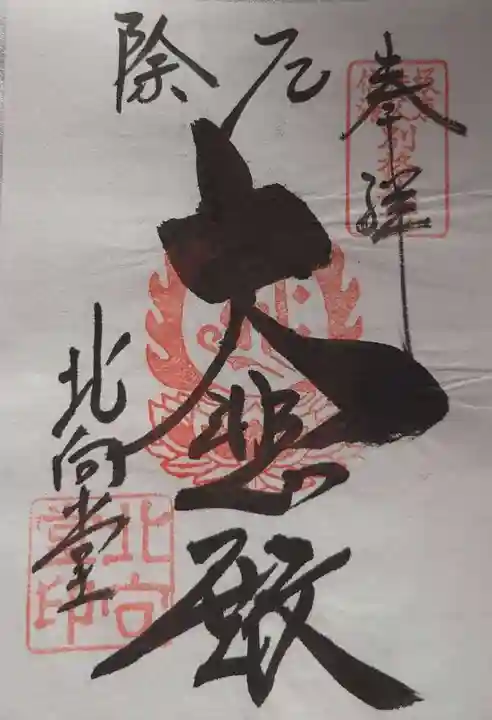 厄除
奉拝
大悲殿
北向堂
北向堂印